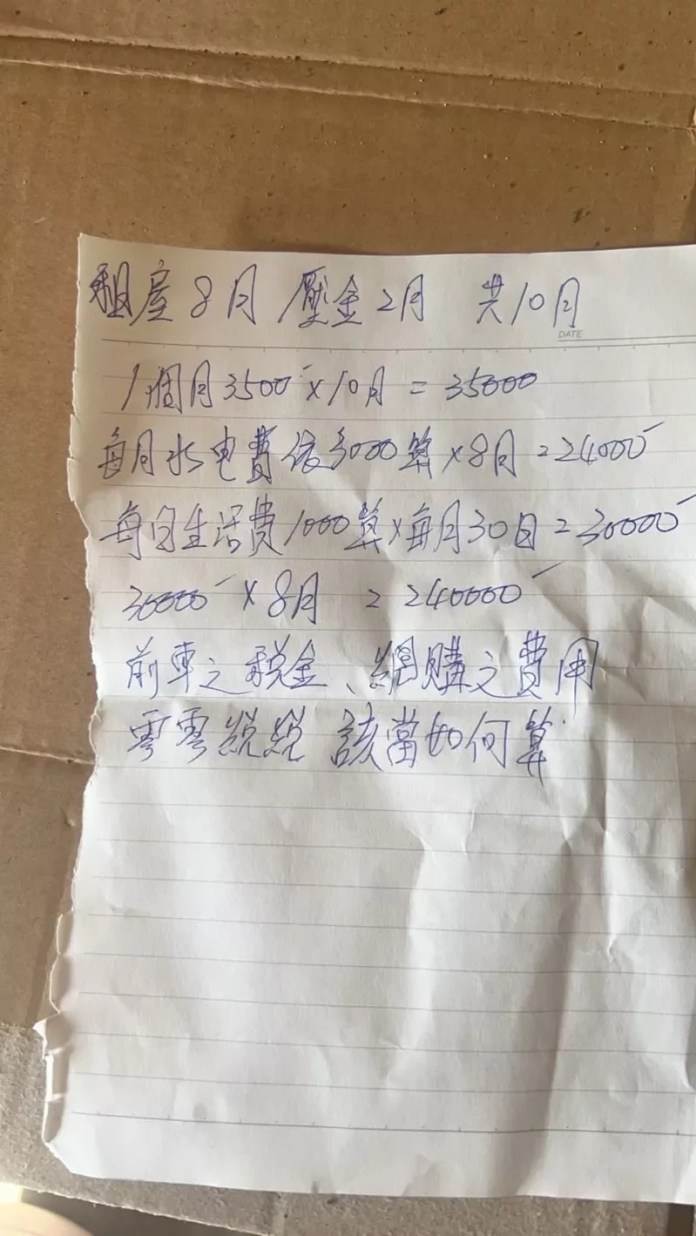 租屋8月 壓金2月 共10月
DATE
1個月3500×10月=35000
每月水电費依3000算×8月=24000
每日生活費1000算×每月30日=30000
30000×8月=240000
前車之稅金、網購之費用
零零總總 該當如何算